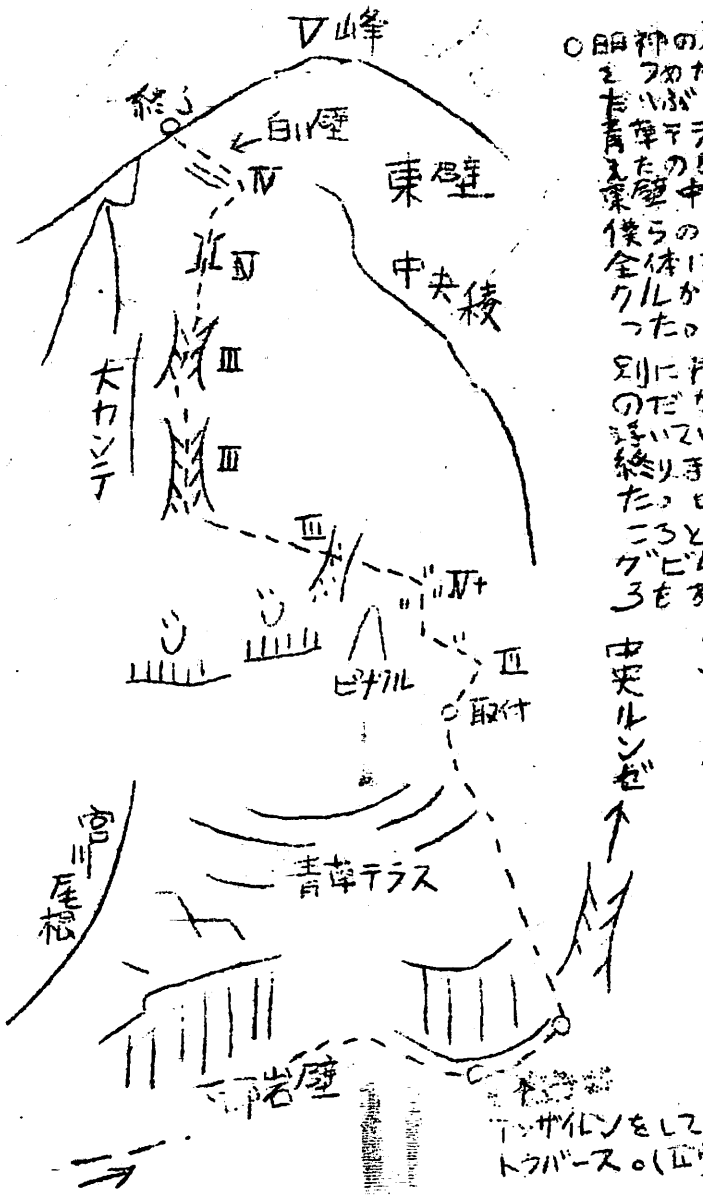 V峰
終了
←白い壁
IV
東壁
IV
中央稜
III
大カンテ
III
III
IV+
III
ピナクル
取付
中央ルンゼ
宮川尾根
青草テラス
下部岩壁
アップザイレンをして
トラバース。(IV
○明神の
をつめた
だいぶ
青草テラ
えたの
東壁中
僕らの
全体に
クルか
った。
別に
のだな
浮いてい
終り
た。
ころと
グビ
ろもあ